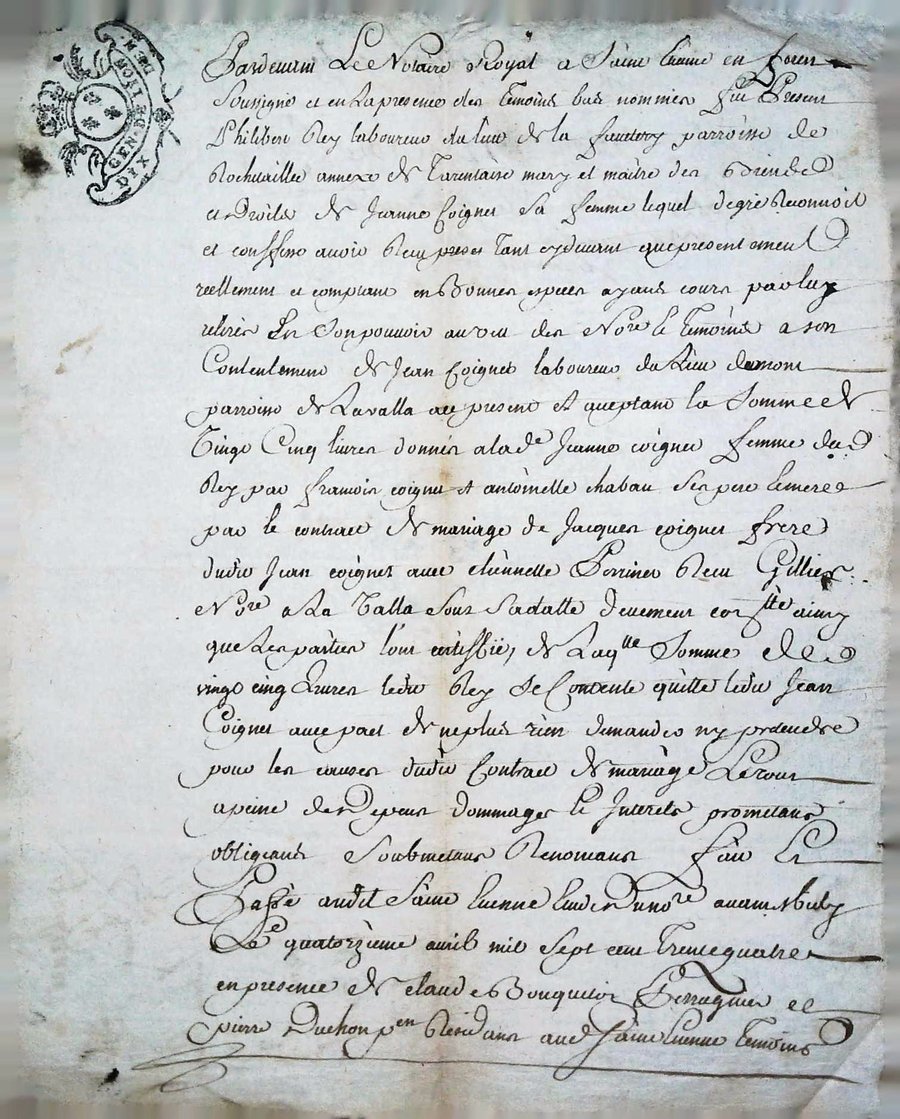 GEN. DE LYON
DIX DEN.
Pardevant Le Notaire Royal a Saint Etienne en forest
Soussigné et en La presence des temoins bas nommés fut Present
Philibert Rey laboureur du lieu de la parroisse de
Rochetaillee annexe de Tarentaise mary et maitre des Biens
et Droits de Jeanne Coignet sa femme lequel de gré Reconnoit
et confesse avoir Reçu tant cydevant que presentement
reellement et comptant en Bonnes especes ayant cours par luy
retirés En Son pouvoir au veu des Nore & Temoins a son
Contentement de Jean Coignet laboureur du Lieu
parroisse de Lavalla acy present et aceptant la Somme de
Vingt Cinq livres donnés a lade Jeanne coignet femme dud
Rey par francois coignet et antoinette chabau Ses pere & mere
par le contract de mariage de Jacques coignet frere
dudit Jean coignet avec etiennette Perrinet Recu Gillier
Nore a La Valla Sous Sa datte deuement ainsy
que Les parties l'ont certiffié, de Laqlle Somme de
vingt cinq Livres ledit Rey Se Contente quitte ledit Jean
Coignet avec pact de ne plus rien demander ny pretendre
pour les causes dudit Contract de mariage Le tout
a peine de Depens dommages & Interets prometans
obligeans Soubmetans Renonceans fait Et
Passé audit Saint Etienne Etude dud nore avant midy
Le quatorzieme avril mil Sept cent Trente quatre
en presence de claude et
pierre Duchon pen Residans aud Saint Etienne Temoins